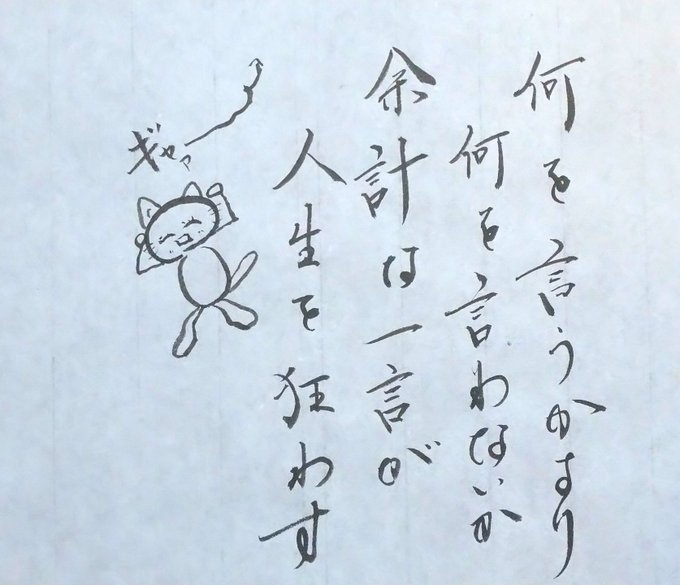 何を言うかより
何を言わないか
余計な一言が
人生を狂わす
ギャァー